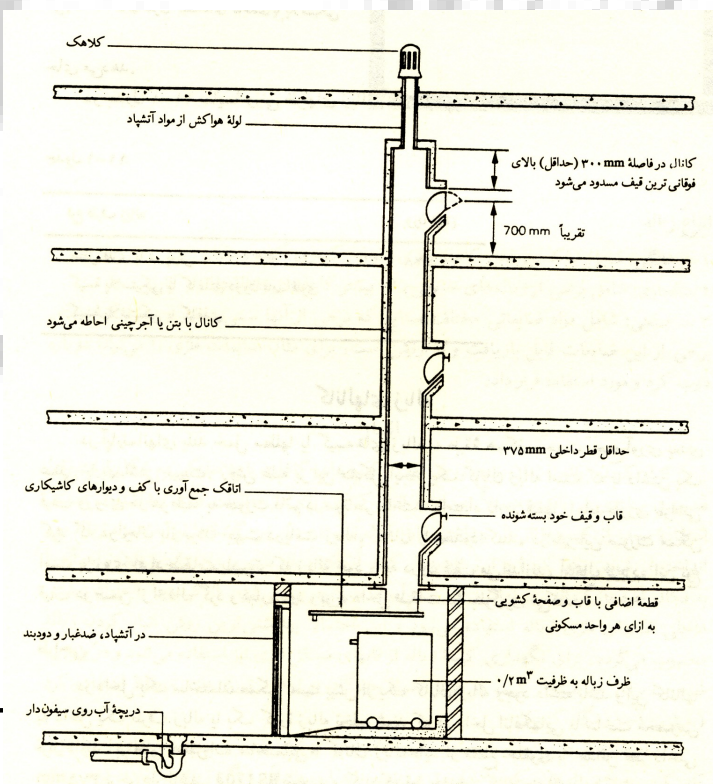 کلاهک
لولهٔ هواکش از مواد آتشپاد
کانال در فاصلهٔ ۳۰۰mm (حداقل) بالای
فوقانی ترین قیف مسدود می‌شود
تقریباً 700 mm
کانال با بتن یا آجرچینی احاطه می‌شود
حداقل قطر داخلی ۳۷۵mm
اتاقک جمع آوری با کف و دیوارهای کاشیکاری
قاب و قیف خود بسته‌شونده
قطعهٔ اضافی با قاب و صفحهٔ کشویی
به ازای هر واحد مسکونی
در آتشپاد، ضدغبار و دودبند
ظرف زباله به ظرفیت ۰/۲m³
دریچهٔ آب‌روی سیفون‌دار